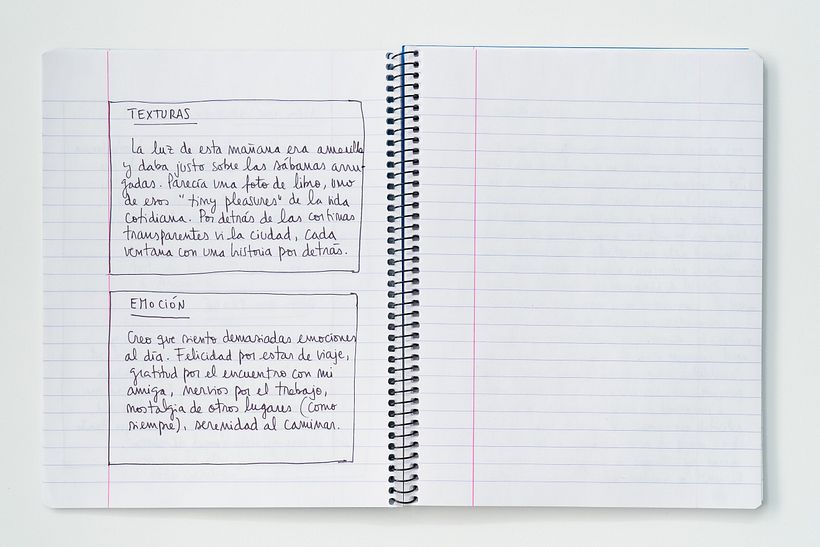 TEXTURAS
La luz de esta mañana era amarilla
y daba justo sobre las sábanas arru-
gadas. Parecía una foto de libro, uno
de esos "tiny pleasures" de la vida
cotidiana. Por detrás de las cortinas
transparentes vi la ciudad, cada
ventana con una historia por detrás.
EMOCIÓN
Creo que siento demasiadas emociones
al día. Felicidad por estar de viaje,
gratitud por el encuentro con mi
amiga, nervios por el trabajo,
nostalgia de otros lugares (como
siempre), serenidad al caminar.